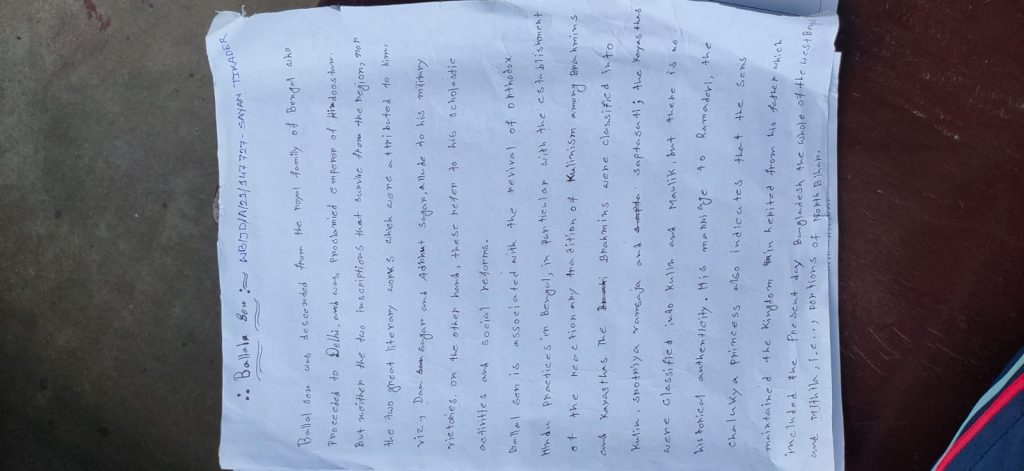 ∴ Ballala Sen :~ WB/JD/A/21/147727 - SAYAN TIKADER
Ballal Sena was descended from the royal family of Bengal who
proceeded to Delhi, and was proclamied emperor of Hindoostan.
But neither the two inscriptions that survive from the region, nor
the two great literary works which were attributed to him,
viz, Dan sagar and Adbhut sagar, allude to his military
victories. on the other hand, these refer to his scholastic
activities and social reforms.
Ballal Sen is associated with the revival of orthodox
Hindu practices in Bengal, in particular with the establishment
of the reactionary tradition of Kulimism among Brahmins
and Kayasthas The Brahmins were classified into
Kulin, srotriya vamsaja and saptasati; the Kayasthas
were classified into Kulin and Maulik, but there is no
historical authenticity. His marriage to Ramadevi, the
Chalukya princess also indicates that the sens
maintained the Kingdom in herited from his father which
included the Present day Bangladesh the whole of the West
and Mithila, i.e.., portions of North Bihar.